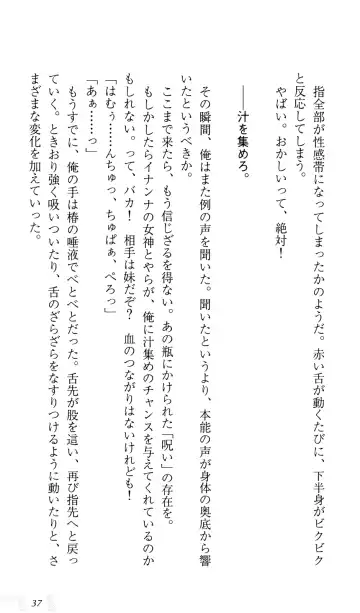 指全部が性感帯になってしまったかのようだ。赤い舌が動くたびに、下半身がビクビク
と反応してしまう。
やばい。おかしいって、絶対！
――汁を集めろ。
その瞬間、俺はまた例の声を聞いた。聞いたというより、本能の声が身体の奥底から響
いたというべきか。
ここまで来たら、もう信じざるを得ない。あの瓶にかけられた「呪い」の存在を。
もしかしたらイナンナの女神とやらが、俺に汁集めのチャンスを与えてくれているのか
もしれない。って、バカ！　相手は妹だぞ？　血のつながりはないけれども！
「はむぅ……んちゅっ、ちゅぱぁ、ぺろっ」
「あぁ……っ」
もうすでに、俺の手は椿の唾液でべとべとだった。舌先が股を這い、再び指先へと戻っ
ていく。ときおり強く吸いついたり、舌のざらざらをなすりつけるように動いたりと、さ
まざまな変化を加えていった。
37